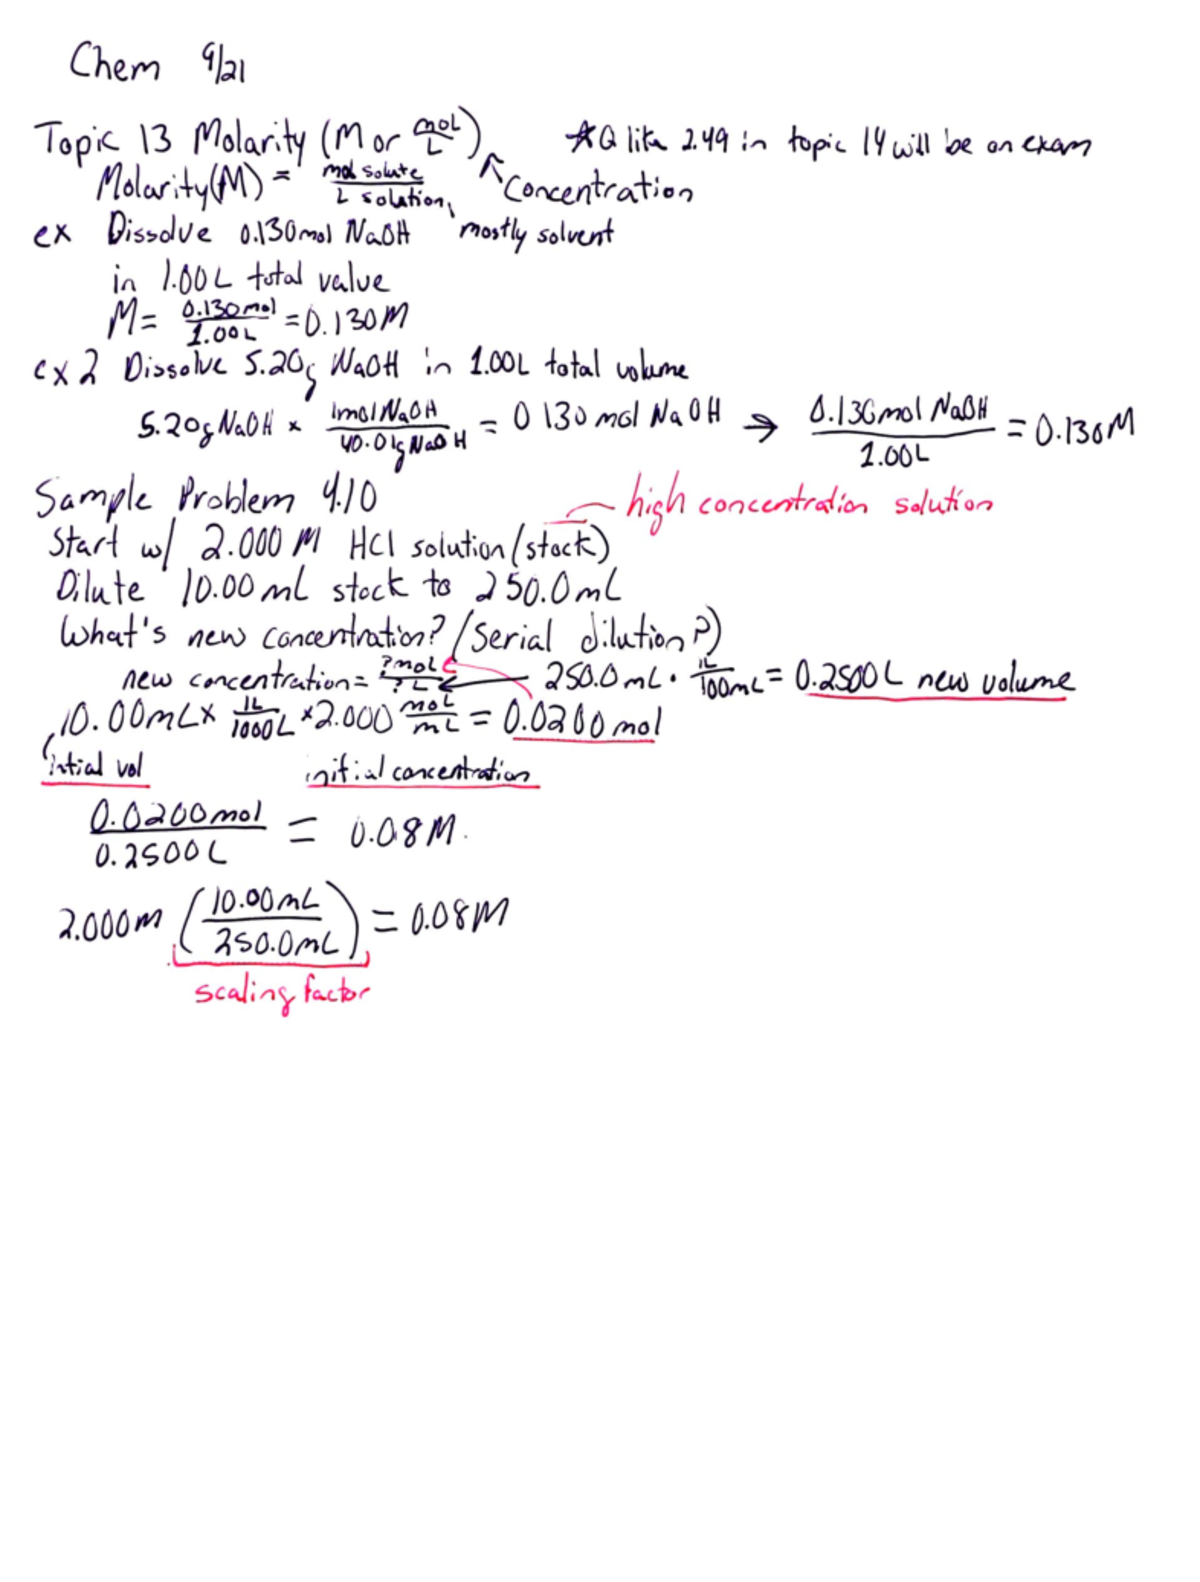 Chem 9/21
Topic 13 Molarity (M or mol/L) *Q like 2.49 in topic 14 will be on exam
Molarity(M) = mol solute / L solution Concentration
ex Dissolve 0.130mol NaOH mostly solvent
in 1.00L total value
M = 0.130mol / 1.00L = 0.130M
ex 2 Dissolve 5.20g NaOH in 1.00L total volume
5.20g NaOH × 1mol NaOH / 40.01g NaOH = 0.130 mol NaOH → 0.130mol NaOH / 1.00L = 0.130M
Sample Problem 4.10 high concentration solution
Start w/ 2.000 M HCl solution (stock)
Dilute 10.00mL stock to 250.0mL
What's new concentration? (Serial dilution?)
new concentration = ?mol / ?L ← 250.0mL · 1L / 100mL = 0.2500L new volume
10.00mL × 1L / 1000L × 2.000 mol / mL = 0.0200 mol
intial vol initial concentration
0.0200mol / 0.2500L = 0.08M.
2.000M (10.00mL / 250.0mL) = 0.08M
scaling factor